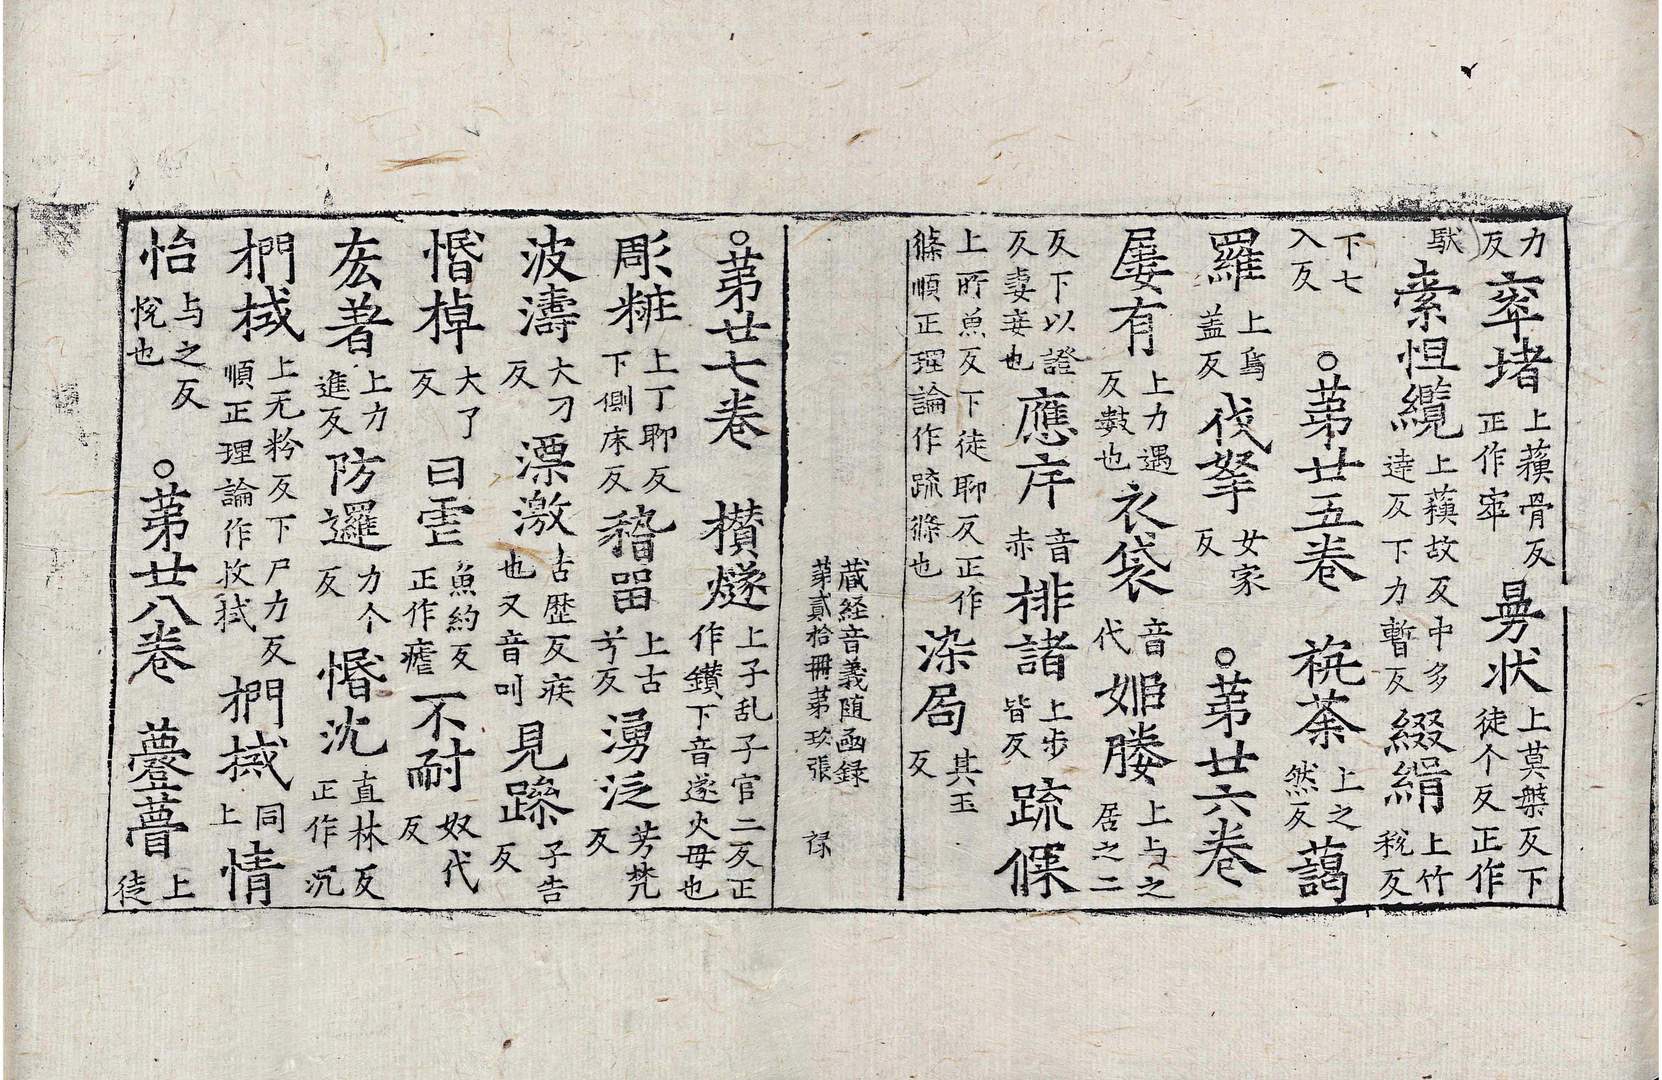 力反窣堵上蘓骨反正作窣㝵状上莫槃反下徒个反正作
䭾素怛纜上蘓故反中多達反下力暫反綴緝上竹税反
下七入反○苐廿五卷㧞荼上之然反蔼
羅上爲盖反伐拏女家反○苐廿六卷
屡有上力遇反數也衣袋音代姬媵上与之居之二
反下以證反妻妾也應斥音赤排諸上步皆反踈條
上所魚反下徒聊反正作䠂順正理論作踈條也染局其玉反
蔵経音義随函録苐貳拾冊苐玖張 禄
○苐廿七卷欑燧上子乱子官二反正作鑚下音遂火母也
彫糚上丁聊反下側床反稽畱上古兮反湧泛芳梵反
波濤大刀反漂激古歷反疾也又音叫見躁子告反
惛棹大了反曰虐魚約反正作瘧不耐奴代反
𠫤著上力進反防邏力个反惛沈直林反正作沉
捫㧣上无粉反下尸力反順正理論作抆拭捫㧣同上情
怡与之反悅也○苐廿八卷䕫瞢上徒